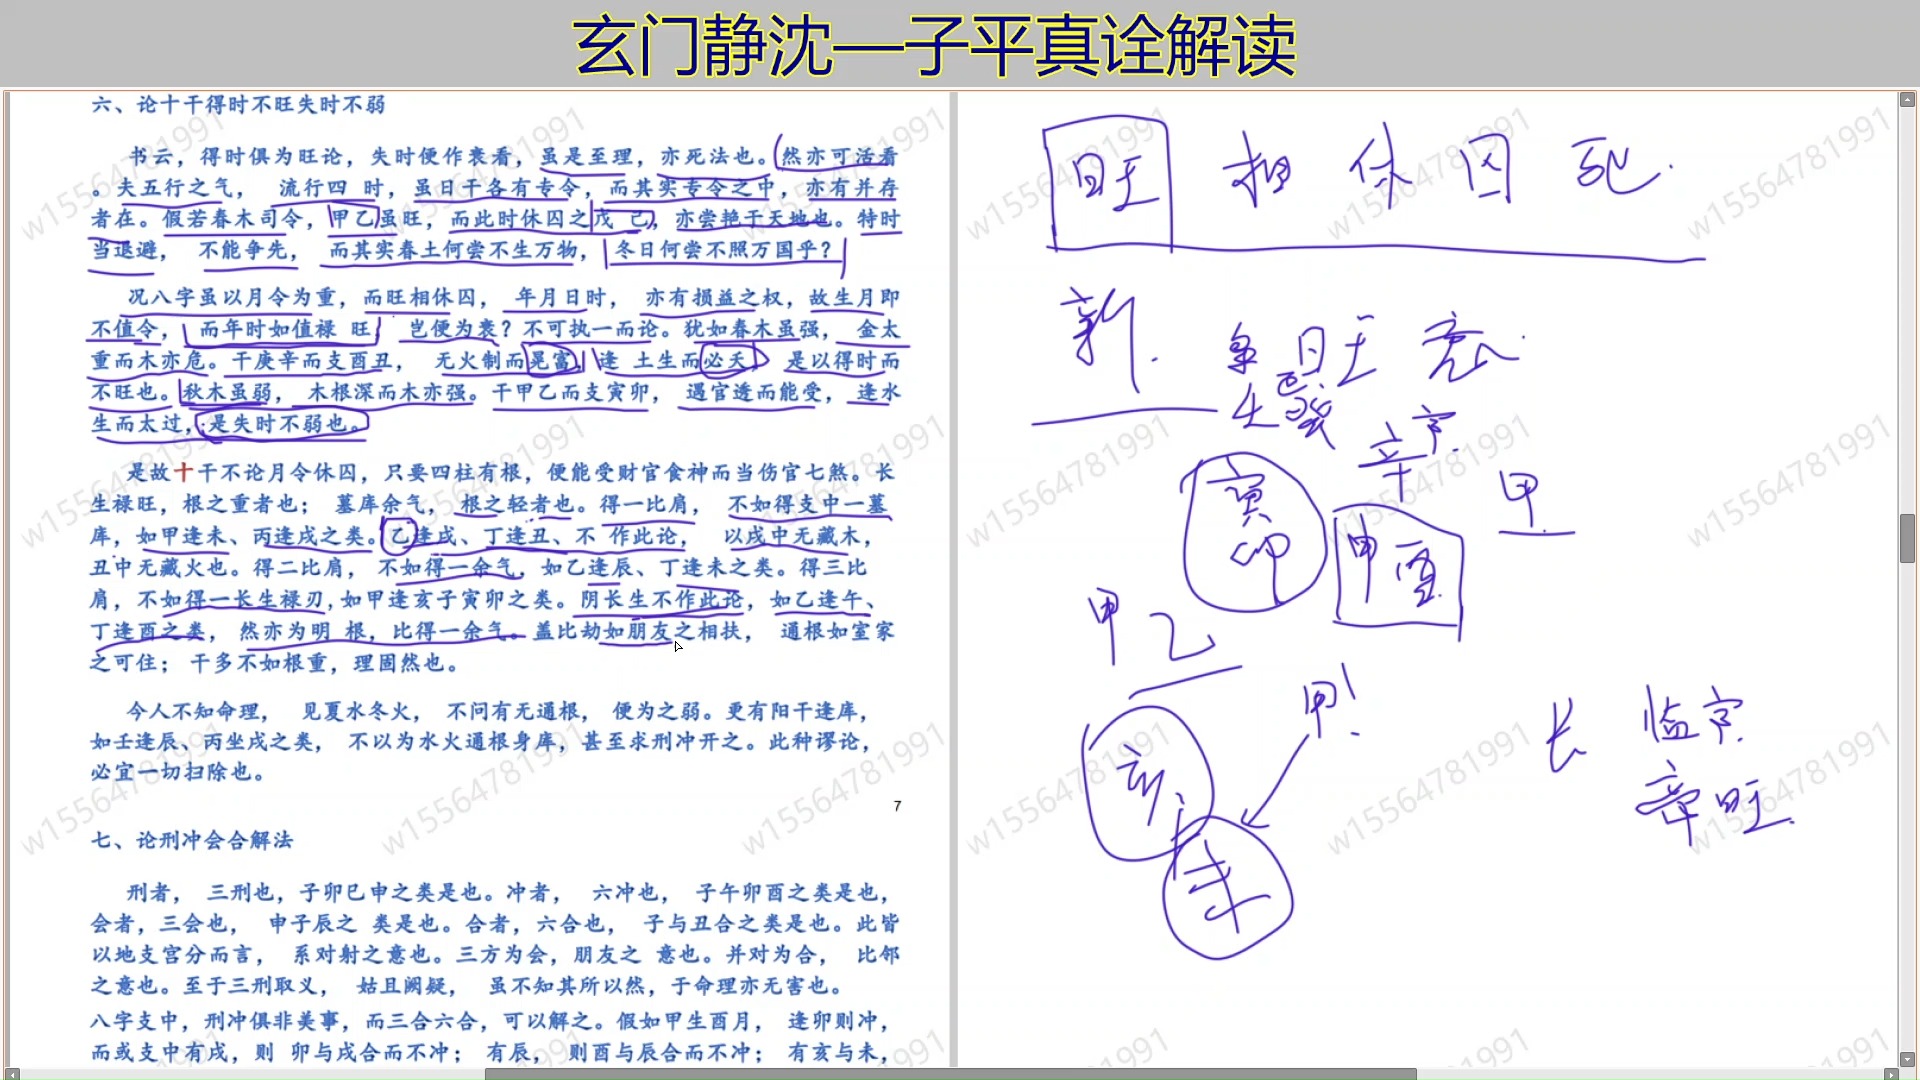 玄门静沈—子平真诠解读
六、论十干得时不旺失时不弱
书云，得时俱为旺论，失时便作衰看，虽是至理，亦死法也。然亦可活看
。夫五行之气， 流行四 时，虽日干各有专令，而其实专令之中，亦有并存
者在。假若春木司令，甲乙虽旺，而此时休囚之戊 己，亦尝艳于天地也。特时
当退避， 不能争先， 而其实春土何尝不生万物，冬日何尝不照万国乎？
况八字虽以月令为重，而旺相休囚， 年月日时， 亦有损益之权，故生月即
不值令， 而年时如值禄 旺， 岂便为衰？不可执一而论。犹如春木虽强， 金太
重而木亦危。干庚辛而支酉丑， 无火制而晃富，逢 土生而必夭， 是以得时而
不旺也。秋木虽弱， 木根深而木亦强。干甲乙而支寅卯， 遇官透而能受，逢水
生而太过，是失时不弱也。
是故十干不论月令休囚，只要四柱有根，便能受财官食神而当伤官七煞。长
生禄旺，根之重者也； 墓库余气， 根之轻者也。得一比肩， 不如得支中一墓
库，如甲逢未、丙逢戌之类。乙逢戌、丁逢丑、不 作此论， 以戌中无藏木，
丑中无藏火也。得二比肩， 不如得一余气，如乙逢辰、丁逢未之类。得三比
肩，不如得一长生禄刃，如甲逢亥子寅卯之类。阴长生不作此论，如乙逢午、
丁逢酉之类， 然亦为明 根，比得一余气。盖比劫如朋友之相扶， 通根如室家
之可住； 干多不如根重，理固然也。
今人不知命理， 见夏水冬火， 不问有无通根， 便为之弱。更有阳干逢库，
如壬逢辰、丙坐戌之类， 不以为水火通根身库，甚至求刑冲开之。此种谬论，
必宜一切扫除也。
7
七、论刑冲会合解法
刑者， 三刑也，子卯巳申之类是也。冲者， 六冲也， 子午卯酉之类是也，
会者，三会也， 申子辰之 类是也。合者，六合也， 子与丑合之类是也。此皆
以地支宫分而言， 系对射之意也。三方为会，朋友之 意也。并对为合， 比邻
之意也。至于三刑取义， 姑且阙疑， 虽不知其所以然，于命理亦无害也。
八字支中，刑冲俱非美事，而三合六合，可以解之。假如甲生酉月， 逢卯则冲，
而或支中有戌，则 卯与戌合而不冲； 有辰， 则酉与辰合而不冲； 有亥与未，
旺 相 休 囚 死
新
旺 衰
辛 官
寅
卯
甲 酉
甲
甲 乙
甲！
亥
未
长 临官
帝旺
w15564781991